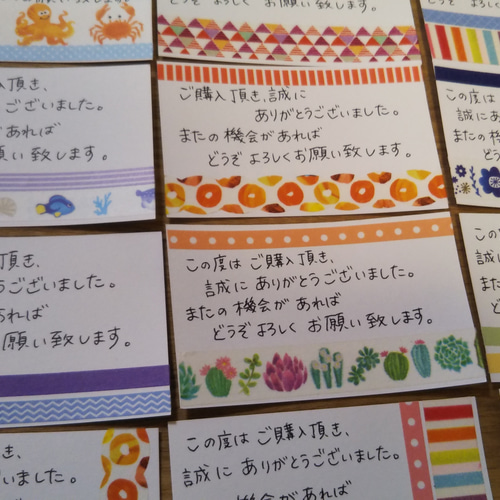 どうぞ よろしく お願い致します。
入頂き、
ございました。
あれば
願い致します。
ご購入頂き、誠に
ありがとうございました。
またの機会があれば
どうぞ よろしくお願い致します。
この度は
誠にあ
またの機
どう
頂き、
うございました。
あれば
願い致します。
この度は ご購入頂き、
誠に ありがとうございました。
またの 機会が あれば
どうぞ よろしく お願い致します。
この度は
誠に
またの
どう
き、
いました。
この度は ご購入頂き、
誠に ありがとうございました。
機会が あれば